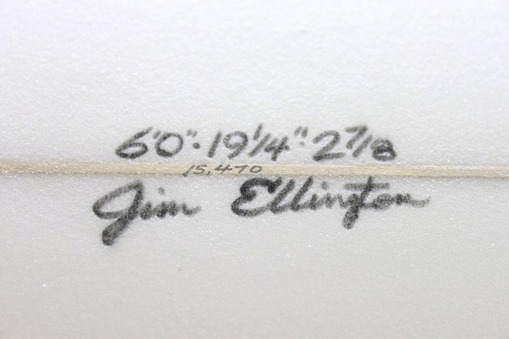 6'0"·19¼"·2⅞
15,470
Jim Ellington